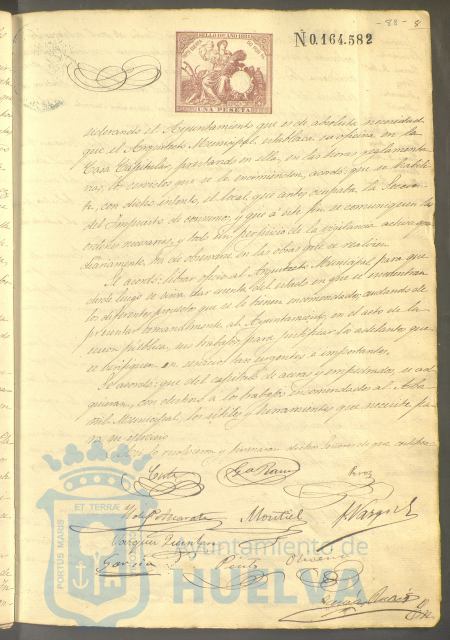 - 88 - 8
SELLO DE AÑO 1881
N 0.164.582
UNA PESETA
siderando el Ayuntamiento que es de absoluta necesidad
que el Arquitecto Municipal, establezca su oficina en la
Casa Capitular, prestando en ella, en las horas reglamenta
rias, los servicios que se le encomienden, acordó: que se habili
te, con dicho intento, el local que antes ocupaba la Recauda
del Impuesto de consumos, y que á este fin se comuniquen las
ordenes necesarias, y todo sin perjuicio de la vigilancia activa que
diariamente, ha de observar en las obras que se realicen.
Se acordó: librar oficio al Arquitecto Municipal para que
desde luego se sirva dar cuenta del estado en que se encuentran
los diferentes proyectos que se le tienen encomendados, cuidando de
presentar semanalmente al Ayuntamiento, en el acto de la
sesion publica, sus trabajos para justificar los adelantos que
se verifiquen en servicios tan urgentes e importantes.
Se acordó: que del capitulo de aceras y empedrados, se ad
quieran, con destino a los trabajos encomendados al Alba
ñil Municipal, los útiles y herramientas que necesite pa
ra su ejercicio.
Así lo resolvieron y firmaron dichos Señores de que certifico
Montiel
J. Vargas
Vazquez
Garcia
ET TERRÆ
PORTUS MARIS
Ayuntamiento de
HUELVA